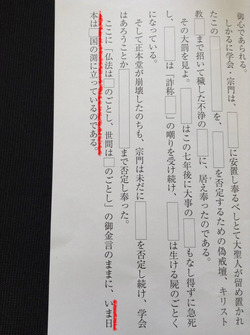 御心であられる。
しかるに学会・宗門は、□に安置し奉るべしとて大聖人が留め置かれ
たこの□を、□を否定するための偽戒壇、キリスト
教□まで招いて穢した不浄の□に、居え奉ったのである。
その大罰を見よ。□はこの七年後に大事の□もなし得ずに急死
し、□は「詐称□」の嘲りを受け続け、□は生ける屍のごとく
になっている。
そして正本堂が崩壊したのちも、宗門は未だに□を否定し続け、学会
はあろうことか□まで否定し奉った。
ここに「仏法は□のごとし、世間は□のごとし」の御金言のままに、いま日
本は□国の淵に立っているのである。